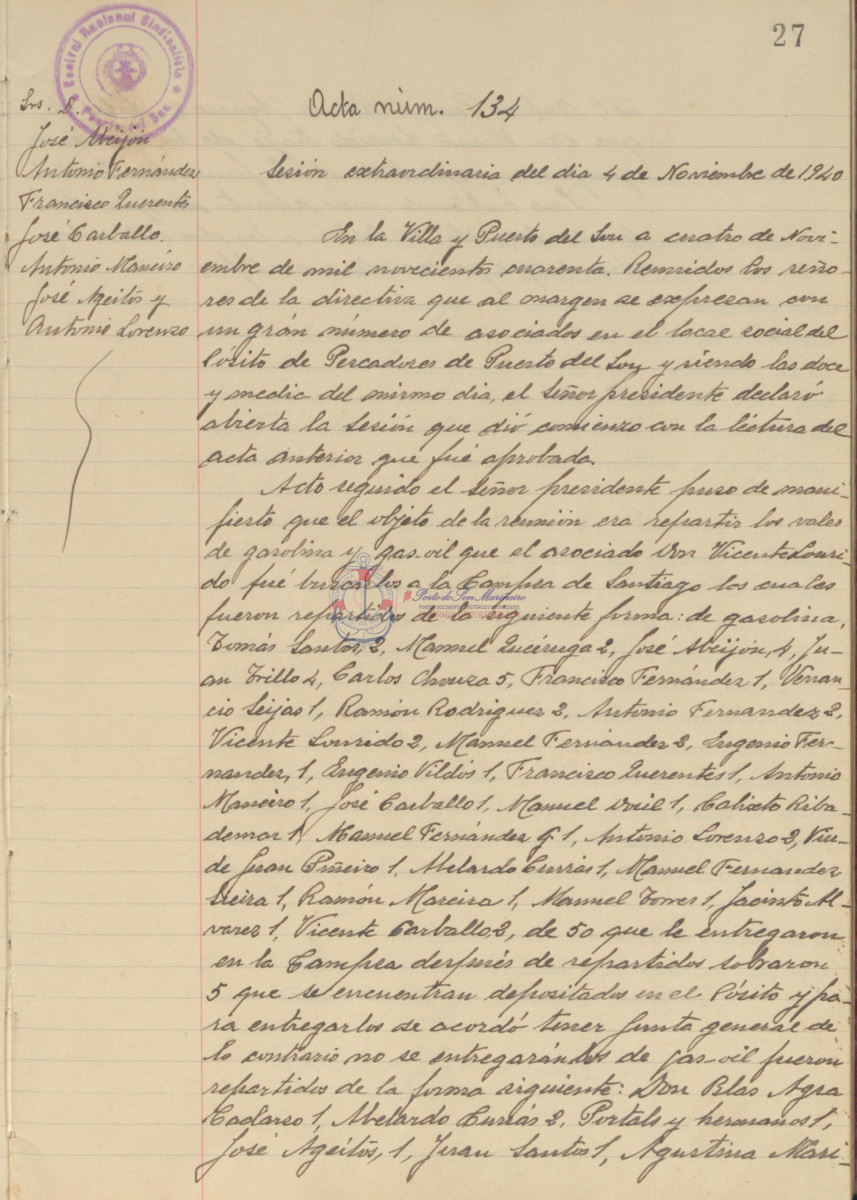 27
Central Nacional Sindicalista
Puerto del Son
Acta núm. 134
Srs. D.
José Abeijón
Antonio Fernández
Francisco Querentes
José Carballo.
Antonio Maneiro
José Ageitos y
Antonio Lorenzo
Sesión extraordinaria del dia 4 de Noviembre de 1940
En la Villa y Puerto del Son a cuatro de Novi-
embre de mil novecientos cuarenta. Reunidos los seño-
res de la directiva que al margen se expresan con
un grán número de asociados en el local social del
Pósito de Pescadores de Puerto del Son y siendo las doce
y media del mismo dia, el Señor presidente declaró
abierta la sesión que dió comienzo con la léctura del
acta anterior que fué aprobada.
Acto seguido el señor presidente puso de mani-
fiesto que el objeto de la reunión era repartir los vales
de gasolina y gas-oil que el asociado Don Vicente Louri-
do fué buscarlos a la Campsa de Santiago los cuales
fueron repartidos de la siguiente forma: de gasolina,
Tomás Santos, 2, Manuel Queiruga 2, José Abeijón, 4, Ju-
an Trillo 4, Carlos Chouza 5, Francisco Fernández 1, Venan-
cio Seijas 1, Ramón Rodriguez 2, Antonio Fernandez 2,
Vicente Lourido 2, Manuel Fernández 2, Eugenio Fer-
nandez, 1, Eugenio Vildós 1, Francisco Querentes 1, Antonio
Maneiro 1, José Carballo 1, Manuel Dosil 1, Calixto Riba-
demar 1, Manuel Fernández G. 1, Antonio Lorenzo 2, Viu-
de Juan Piñeiro 1, Abelardo Currás 1, Manuel Fernandez
Vieira 1, Ramón Mareira 1, Manuel Torres 1, Jacinto Al-
varez 1, Vicente Carballo, 2, de 50 que le entregaron
en la Campsa después de repartidos sobraron
5 que se encuentran depositados en el Pósito y pa-
ra entregarlos se acordó tener Junta general de
lo contrario no se entregarán los de gas-oil fueron
repartidos de la forma siguiente: Don Blas Agra
Cadarso 1, Abelardo Currás 2, Portals y hermanos 1,
José Ageitos, 1, Juan Santos 1, Agustina Mari-
#PortodoSonMariñeiro